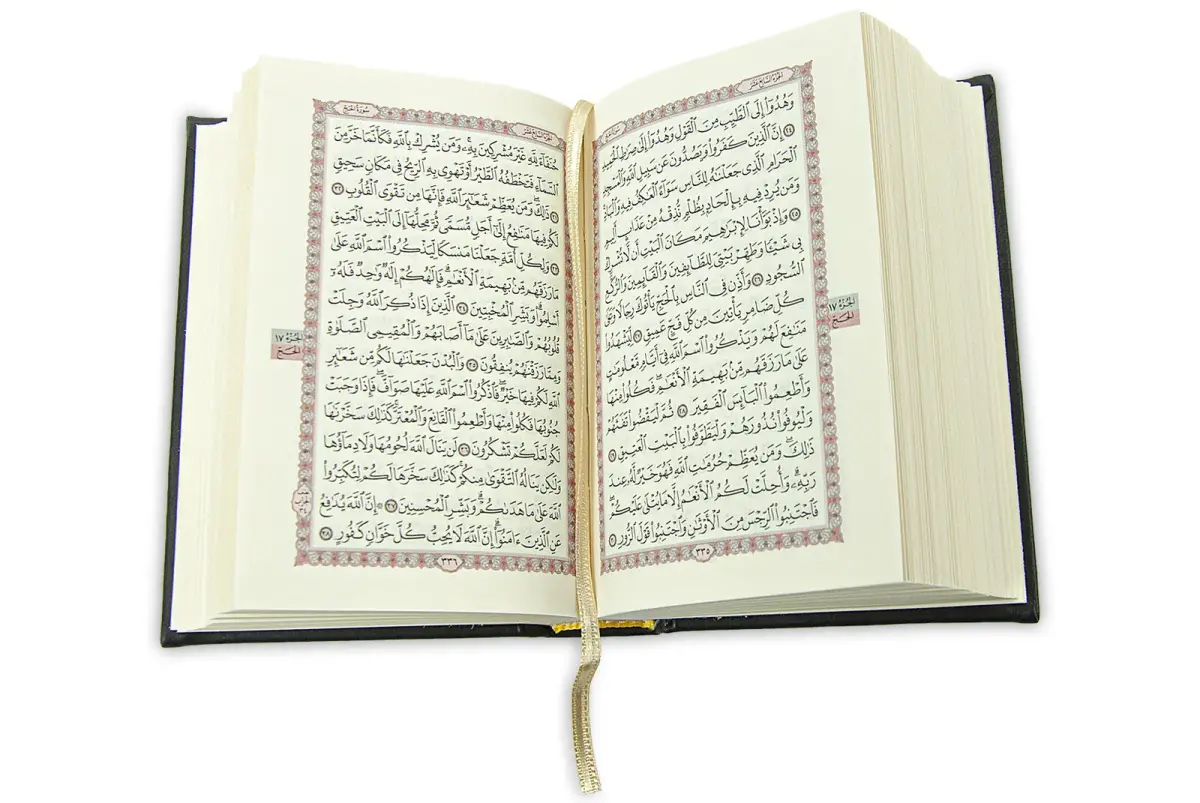 الجزء السابع عشر
وَهُدُوٓاْ إِلَى ٱلطَّيِّبِ مِنَ ٱلۡقَوۡلِ وَهُدُوٓاْ إِلَىٰ صِرَٰطِ ٱلۡحَمِيدِ
٢٤ إِنَّ ٱلَّذِينَ كَفَرُواْ وَيَصُدُّونَ عَن سَبِيلِ ٱللَّهِ وَٱلۡمَسۡجِدِ
ٱلۡحَرَامِ ٱلَّذِي جَعَلۡنَٰهُ لِلنَّاسِ سَوَآءً ٱلۡعَٰكِفُ فِيهِ وَٱلۡبَادِۚ
وَمَن يُرِدۡ فِيهِ بِإِلۡحَادِۭ بِظُلۡمٖ نُّذِقۡهُ مِنۡ عَذَابٍ أَلِيمٖ
٢٥ وَإِذۡ بَوَّأۡنَا لِإِبۡرَٰهِيمَ مَكَانَ ٱلۡبَيۡتِ أَن لَّا تُشۡرِكۡ
بِي شَيۡـٔٗا وَطَهِّرۡ بَيۡتِيَ لِلطَّآئِفِينَ وَٱلۡقَآئِمِينَ وَٱلرُّكَّعِ
ٱلسُّجُودِ ٢٦ وَأَذِّن فِي ٱلنَّاسِ بِٱلۡحَجِّ يَأۡتُوكَ رِجَالٗا وَعَلَىٰ
كُلِّ ضَامِرٖ يَأۡتِينَ مِن كُلِّ فَجٍّ عَمِيقٖ ٢٧ لِّيَشۡهَدُواْ
مَنَٰفِعَ لَهُمۡ وَيَذۡكُرُواْ ٱسۡمَ ٱللَّهِ فِيٓ أَيَّامٖ مَّعۡلُومَٰتٍ
عَلَىٰ مَا رَزَقَهُم مِّنۢ بَهِيمَةِ ٱلۡأَنۡعَٰمِۖ فَكُلُواْ مِنۡهَا
وَأَطۡعِمُواْ ٱلۡبَآئِسَ ٱلۡفَقِيرَ ٢٨ ثُمَّ لۡيَقۡضُواْ تَفَثَهُمۡ
وَلۡيُوفُواْ نُذُورَهُمۡ وَلۡيَطَّوَّفُواْ بِٱلۡبَيۡتِ ٱلۡعَتِيقِ ٢٩
ذَٰلِكَۖ وَمَن يُعَظِّمۡ حُرُمَٰتِ ٱللَّهِ فَهُوَ خَيۡرٞ لَّهُۥ عِندَ
رَبِّهِۦۗ وَأُحِلَّتۡ لَكُمُ ٱلۡأَنۡعَٰمُ إِلَّا مَا يُتۡلَىٰ عَلَيۡكُمۡۖ
فَٱجۡتَنِبُواْ ٱلرِّجۡسَ مِنَ ٱلۡأَوۡثَٰنِ وَٱجۡتَنِبُواْ قَوۡلَ ٱلزُّورِ ٣٠
الجزء ١٧
الحج
٣٣٥
الجزء السابع عشر
سورة الحج
حُنَفَآءَ لِلَّهِ غَيۡرَ مُشۡرِكِينَ بِهِۦۚ وَمَن يُشۡرِكۡ بِٱللَّهِ فَكَأَنَّمَا خَرَّ مِنَ
ٱلسَّمَآءِ فَتَخۡطَفُهُ ٱلطَّيۡرُ أَوۡ تَهۡوِي بِهِ ٱلرِّيحُ فِي مَكَانٖ سَحِيقٖ
٣١ ذَٰلِكَۖ وَمَن يُعَظِّمۡ شَعَٰٓئِرَ ٱللَّهِ فَإِنَّهَا مِن تَقۡوَى ٱلۡقُلُوبِ ٣٢
لَكُمۡ فِيهَا مَنَٰفِعُ إِلَىٰٓ أَجَلٖ مُّسَمّٗى ثُمَّ مَحِلُّهَآ إِلَى ٱلۡبَيۡتِ ٱلۡعَتِيقِ
٣٣ وَلِكُلِّ أُمَّةٖ جَعَلۡنَا مَنسَكٗا لِّيَذۡكُرُواْ ٱسۡمَ ٱللَّهِ عَلَىٰ
مَا رَزَقَهُم مِّنۢ بَهِيمَةِ ٱلۡأَنۡعَٰمِۗ فَإِلَٰهُكُمۡ إِلَٰهٞ وَٰحِدٞ فَلَهُۥٓ
أَسۡلِمُواْۗ وَبَشِّرِ ٱلۡمُخۡبِتِينَ ٣٤ ٱلَّذِينَ إِذَا ذُكِرَ ٱللَّهُ وَجِلَتۡ
قُلُوبُهُمۡ وَٱلصَّٰبِرِينَ عَلَىٰ مَآ أَصَابَهُمۡ وَٱلۡمُقِيمِي ٱلصَّلَوٰةِ
وَمِمَّا رَزَقۡنَٰهُمۡ يُنفِقُونَ ٣٥ وَٱلۡبُدۡنَ جَعَلۡنَٰهَا لَكُم مِّن شَعَٰٓئِرِ
ٱللَّهِ لَكُمۡ فِيهَا خَيۡرٞۖ فَٱذۡكُرُواْ ٱسۡمَ ٱللَّهِ عَلَيۡهَا صَوَآفَّۖ فَإِذَا وَجَبَتۡ
جُنُوبُهَا فَكُلُواْ مِنۡهَا وَأَطۡعِمُواْ ٱلۡقَانِعَ وَٱلۡمُعۡتَرَّۚ كَذَٰلِكَ سَخَّرۡنَٰهَا
لَكُمۡ لَعَلَّكُمۡ تَشۡكُرُونَ ٣٦ لَن يَنَالَ ٱللَّهَ لُحُومُهَا وَلَا دِمَآؤُهَا
وَلَٰكِن يَنَالُهُ ٱلتَّقۡوَىٰ مِنكُمۡۚ كَذَٰلِكَ سَخَّرَهَا لَكُمۡ لِتُكَبِّرُواْ
ٱللَّهَ عَلَىٰ مَا هَدَىٰكُمۡۗ وَبَشِّرِ ٱلۡمُحۡسِنِينَ ٣٧ ۞ إِنَّ ٱللَّهَ يُدَٰفِعُ
عَنِ ٱلَّذِينَ ءَامَنُوٓاْۗ إِنَّ ٱللَّهَ لَا يُحِبُّ كُلَّ خَوَّانٖ كَفُورٍ ٣٨
الجزء ١٧
الحج
٣٣٦